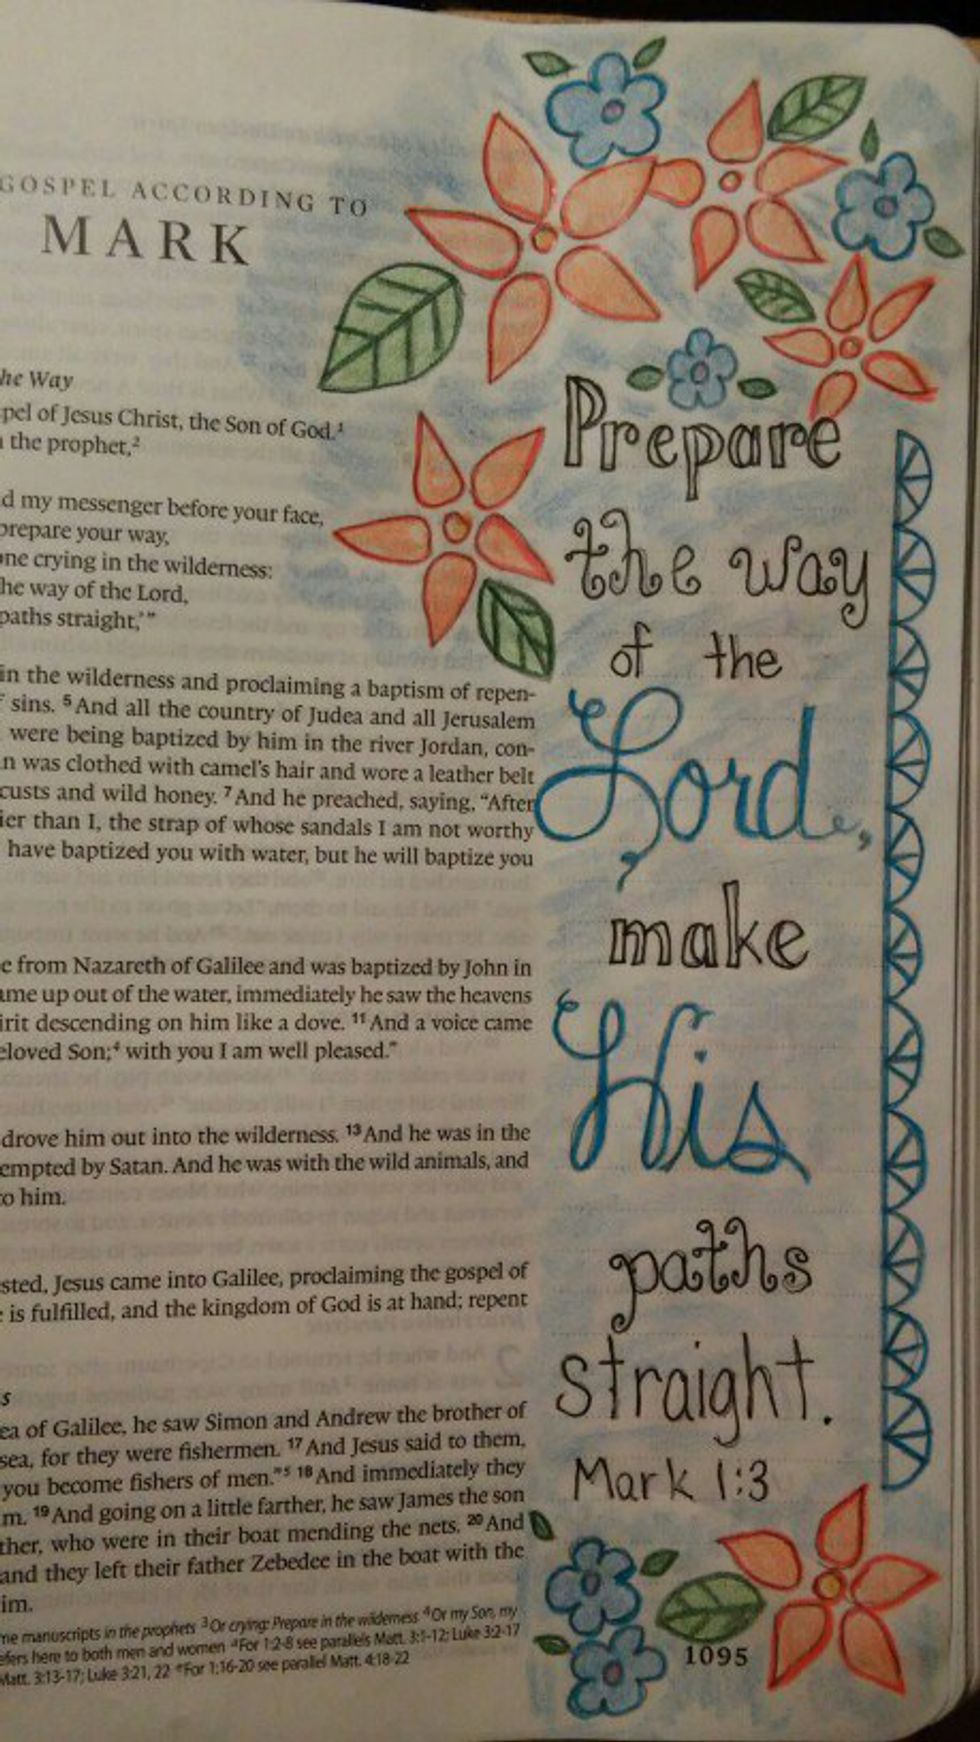 GOSPEL ACCORDING TO
MARK
he Way
pel of Jesus Christ, the Son of God.¹
the prophet,²
d my messenger before your face,
prepare your way,
one crying in the wilderness:
he way of the Lord,
paths straight,'"
in the wilderness and proclaiming a baptism of repen-
sins. ⁵And all the country of Judea and all Jerusalem
were being baptized by him in the river Jordan, con-
n was clothed with camel's hair and wore a leather belt
custs and wild honey. ⁷And he preached, saying, "After
ier than I, the strap of whose sandals I am not worthy
have baptized you with water, but he will baptize you
e from Nazareth of Galilee and was baptized by John in
ame up out of the water, immediately he saw the heavens
irit descending on him like a dove. ¹¹And a voice came
eloved Son;⁴ with you I am well pleased."
drove him out into the wilderness. ¹³And he was in the
empted by Satan. And he was with the wild animals, and
to him.
sted, Jesus came into Galilee, proclaiming the gospel of
is fulfilled, and the kingdom of God is at hand; repent
s
ea of Galilee, he saw Simon and Andrew the brother of
sea, for they were fishermen. ¹⁷And Jesus said to them,
you become fishers of men."⁵ ¹⁸And immediately they
m. ¹⁹And going on a little farther, he saw James the son
ther, who were in their boat mending the nets. ²⁰And
and they left their father Zebedee in the boat with the
im.
me manuscripts in the prophets ³Or crying: Prepare in the wilderness ⁴Or my Son, my
efers here to both men and women For 1:2-8 see parallels Matt. 3:1-12; Luke 3:2-17
Matt. 3:13-17; Luke 3:21, 22 For 1:16-20 see parallel Matt. 4:18-22
Prepare
the way
of the
Lord,
make
His
paths
straight.
Mark 1:3
1095